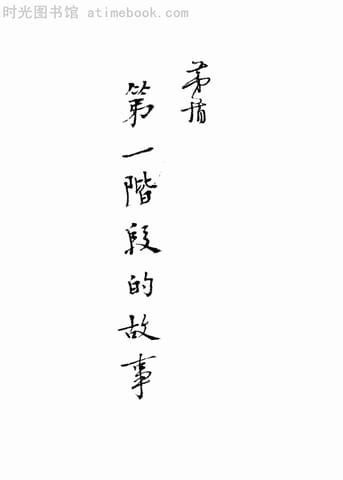 时光图书馆 - atimebook.com
茅盾
第一階段的故事